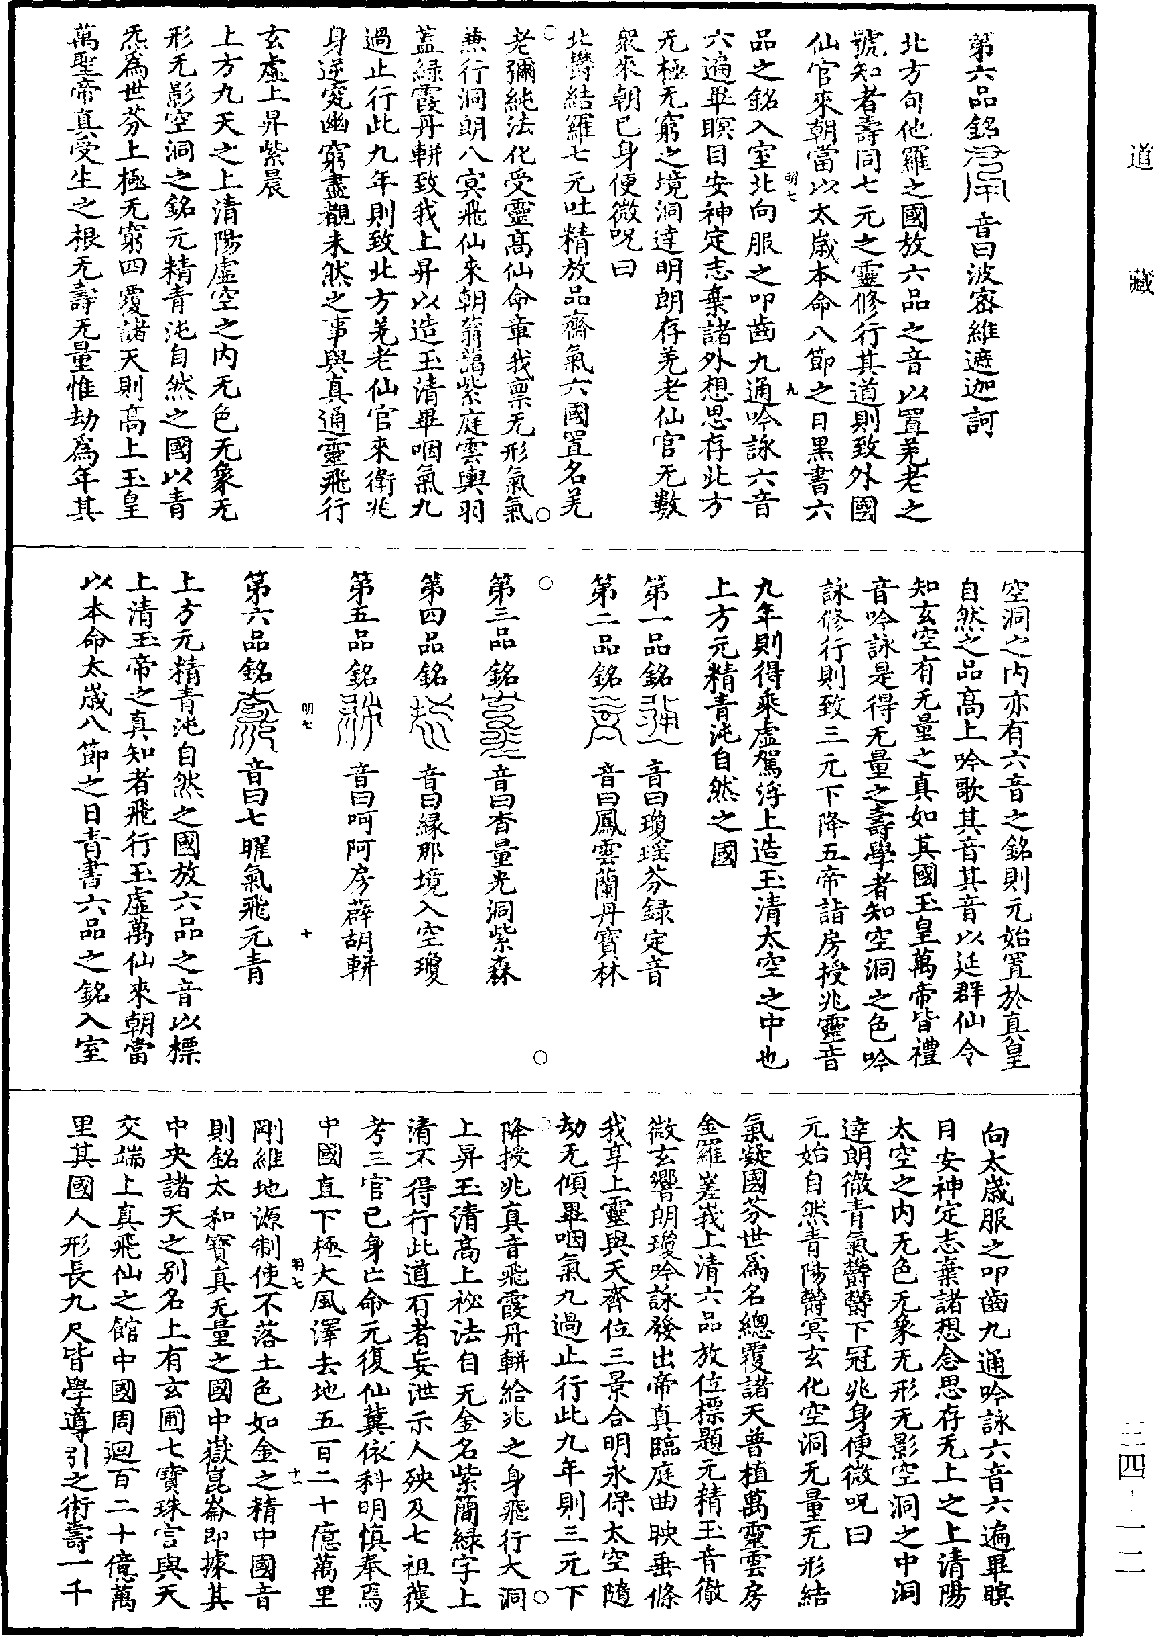 道藏
第六品銘 音曰波密維遮迦訶
北方句他羅之國放六品之音以置羌老之
號知者壽同七元之靈修行其道則致外國
仙官來朝當以太歲本命八節之日黑書六
品之銘入室北向服之叩齒九通吟詠六音
六遍畢瞑目安神定志棄諸外想思存北方
无極无窮之境洞達明朗存羌老仙官无數
衆來朝已身便微呪曰
北欝結羅七元吐精放品齋氣六國置名羌
老彌純法化受靈高仙命章我稟无形氣氣
兼行洞朗八冥飛仙來朝蓊藹紫庭雲輿羽
蓋緑霞丹軿致我上昇以造玉清畢咽氣九
過止行此九年則致北方羌老仙官來衛兆
身逆究幽窮盡觀未然之事與真通靈飛行
玄虛上昇紫晨
上方九天之上清陽虛空之内无色无象无
形无影空洞之銘元精青沌自然之國以青
炁為世芬上極无窮四覆諸天則高上玉皇
萬聖帝真受生之根无壽无量惟劫為年其
明七
九
空洞之内亦有六音之銘則元始置於真皇
自然之品高上吟歌其音其音以延群仙令
知玄空有无量之真如其國玉皇萬帝皆禮
音吟詠是得无量之壽學者知空洞之色吟
詠修行則致三元下降五帝詣房授兆靈音
九年則得乘虛駕浮上造玉清太空之中也
上方元精青沌自然之國
第一品銘 音曰瓊瑶芬録定音
第二品銘 音曰鳳雲蘭丹寳林
第三品銘 音曰杳量光洞紫森
第四品銘 音曰緣那境入空瓊
第五品銘 音曰呵阿房薜胡軿
明七
十
第六品銘 音曰七曜氣飛元青
上方元精青沌自然之國放六品之音以標
上清玉帝之真知者飛行玉虛萬仙來朝當
以本命太歲八節之日青書六品之銘入室
向太歲服之叩齒九通吟詠六音六遍畢瞑
目安神定志棄諸想念思存无上之上清陽
太空之内无色无象无形无影空洞之中洞
達朗徹青氣欝欝下冠兆身便微呪曰
元始自然青陽欝冥玄化空洞无量无形結
氣凝國芬世為名總覆諸天普植萬靈雲房
金羅嵳峩上清六品放位標題元精玉音徹
微玄響朗瓊吟詠發出帝真臨庭曲映垂條
我享上靈與天齊位三景合明永保太空隨
劫无傾畢咽氣九過止行此九年則三元下
降授兆真音飛霞丹軿給兆之身飛行大洞
上昇玉清高上祕法自无金名紫簡緑字上
清不得行此道有者妄泄示人殃及七祖獲
考三官已身亡命元復仙冀依科明慎奉焉
中國直下極大風澤去地五百二十億萬里
明七
十一
剛維地源制使不落土色如金之精中國音
則銘太和寳真无量之國中嶽崑崙即據其
中央諸天之别名上有玄圃七寳珠宫與天
交端上真飛仙之館中國周迴百二十億萬
里其國人形長九尺皆學導引之術壽一千
三四·一二